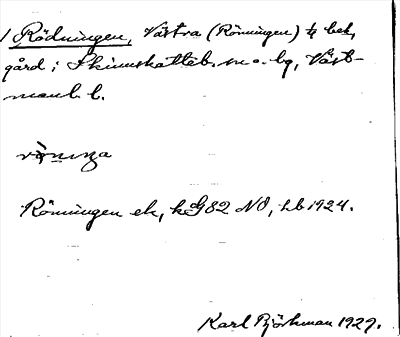 1 Rödningen, Västra (Rönningen) ¼ bek,
gård i Skinnskatteb. sn o. bg, Väst-
manl. l.
Rönningen ek, kG82 NO, hb 1924.
Karl Björkman 1929.